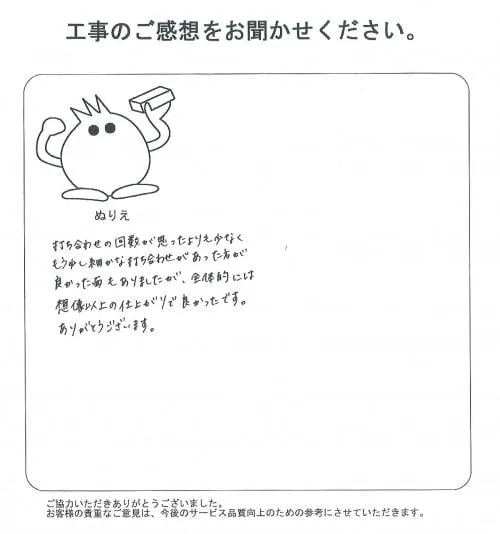 工事のご感想をお聞かせください。
ぬりえ
打ち合わせの回数が思ったよりも少なく
もう少し細かな打ち合わせがあった方が
良かった面もありましたが、全体的には
想像以上の仕上がりで良かったです。
ありがとうございます。
ご協力いただきありがとうございました。
お客様の貴重なご意見は、今後のサービス品質向上のための参考にさせていただきます。